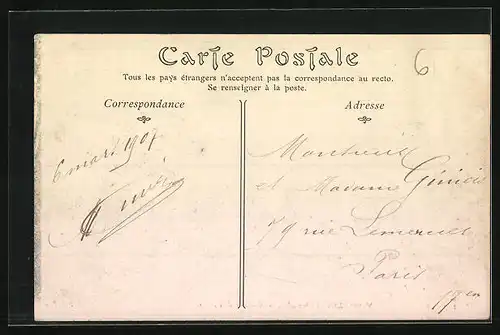 Carte Postale
6
Tous les pays étrangers n'acceptent pas la correspondance au recto.
Se renseigner à la poste.
Correspondance
Adresse
6 mars 1907
et Madame
79 rue
Paris
17 en